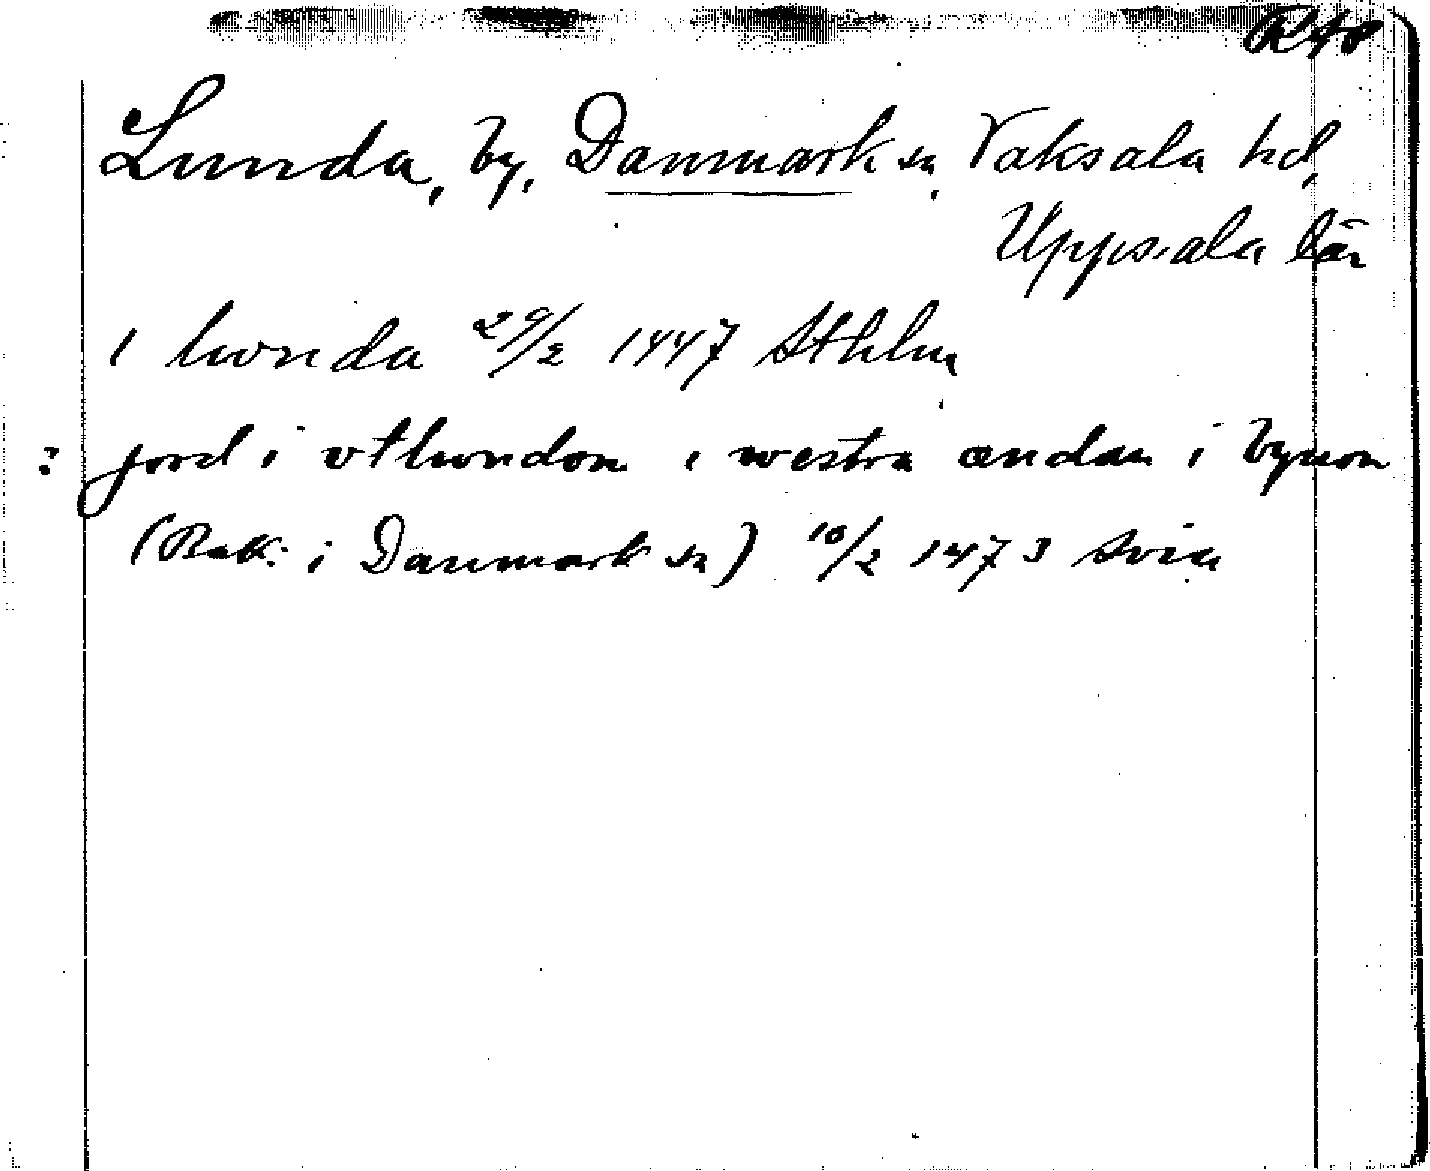 RAP
Lunda, by, Danmark sn, Vaksala hd,
Uppsala län
i lwnda 29/2 1447 Sthlm
: jord i vtlwndom i westra ændan i bynom
(Bek. i Danmark sn) 10/2 1473